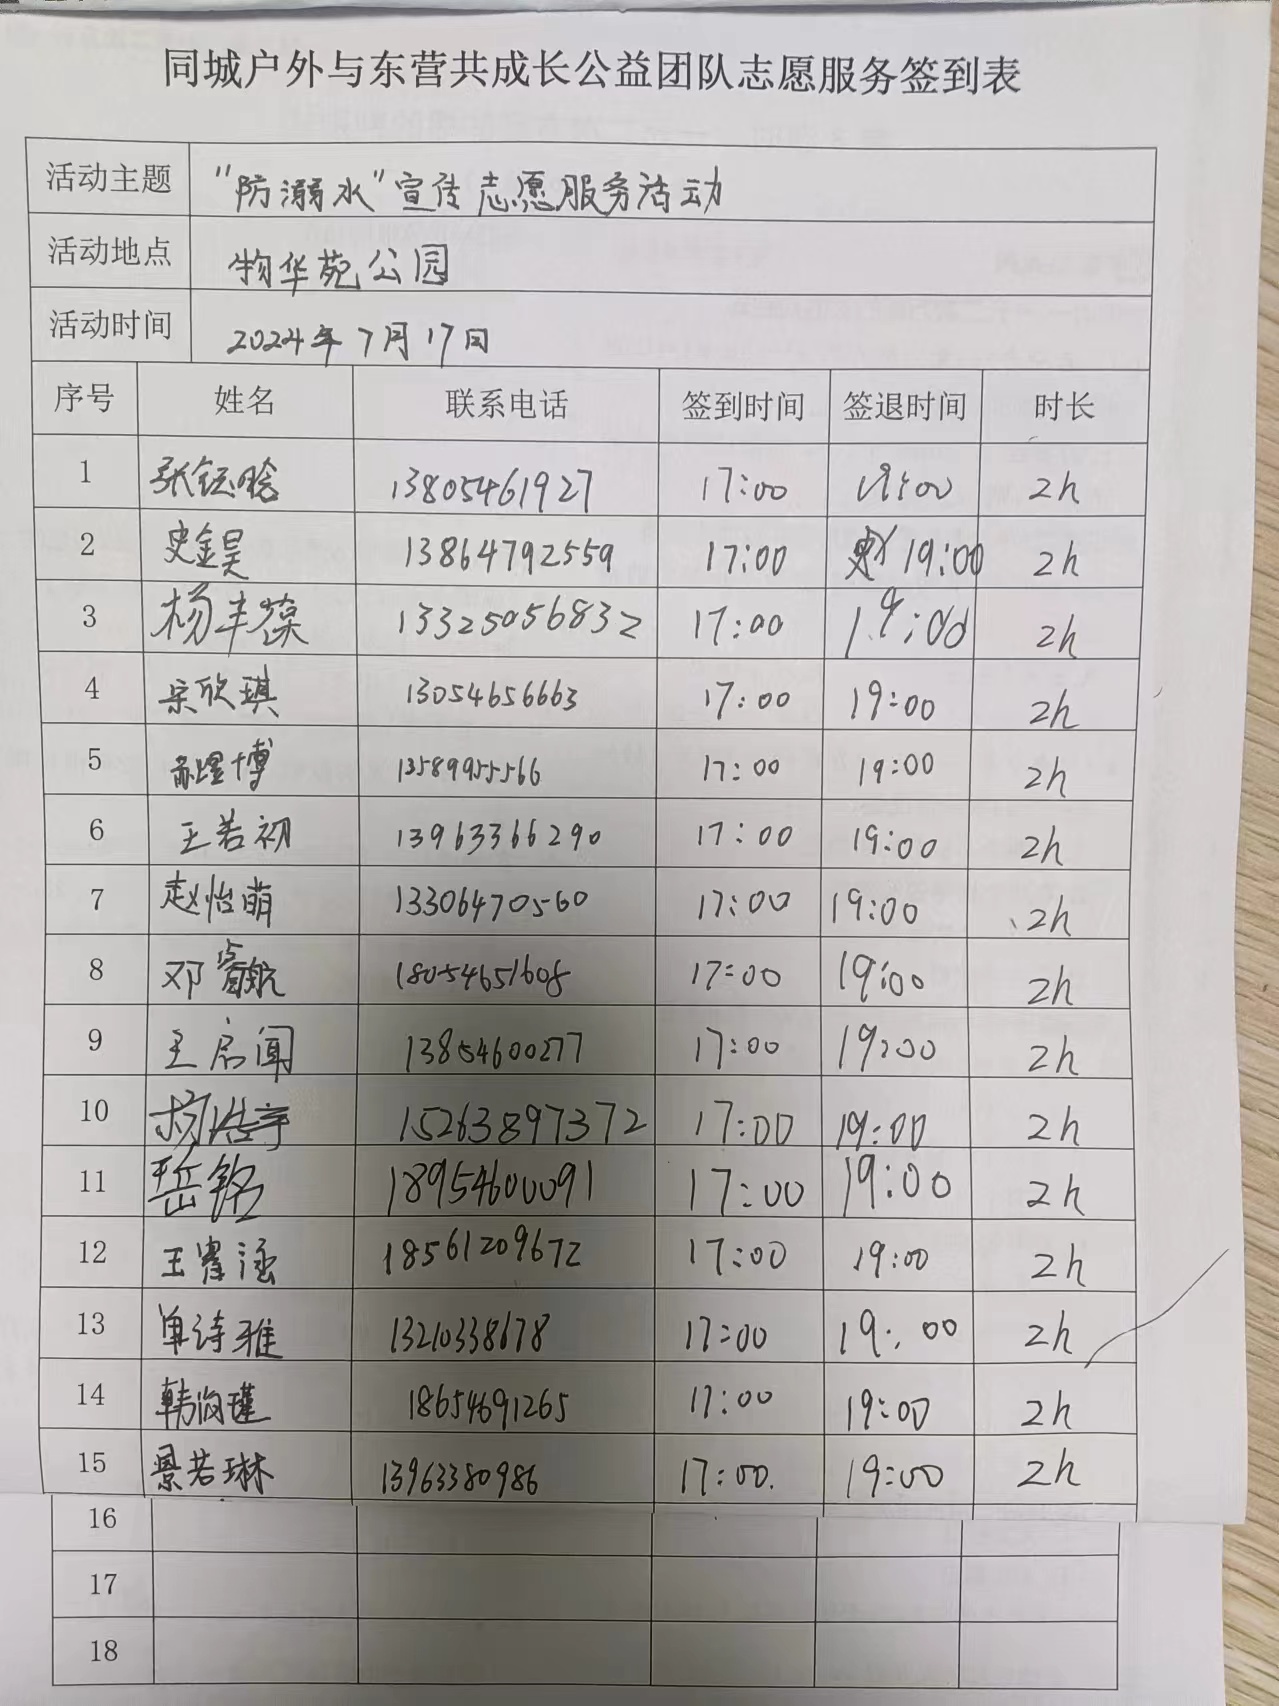 同城户外与东营共成长公益团队志愿服务签到表
活动主题 "防溺水"宣传志愿服务活动
活动地点 物华苑公园
活动时间 2024年7月17日
序号 姓名 联系电话 签到时间 签退时间 时长
1 张钰晗 13805461927 17:00 19:00 2h
2 史金昊 13864792559 17:00 19:00 2h
3 杨丰葆 13325056832 17:00 19:00 2h
4 宋欣琪 13054656663 17:00 19:00 2h
5 博 13589955566 17:00 19:00 2h
6 王若初 13963366290 17:00 19:00 2h
7 赵怡萌 13306470560 17:00 19:00 2h
8 邓睿航 18054651608 17:00 19:00 2h
9 王启闻 13854600277 17:00 19:00 2h
10 杨浩宇 15263897372 17:00 19:00 2h
11 岳铭 18954600091 17:00 19:00 2h
12 王涵 18561209672 17:00 19:00 2h
13 单诗雅 13210338678 17:00 19:00 2h
14 韩瑾 18654691265 17:00 19:00 2h
15 景若琳 13963380986 17:00. 19:00 2h
16
17
18